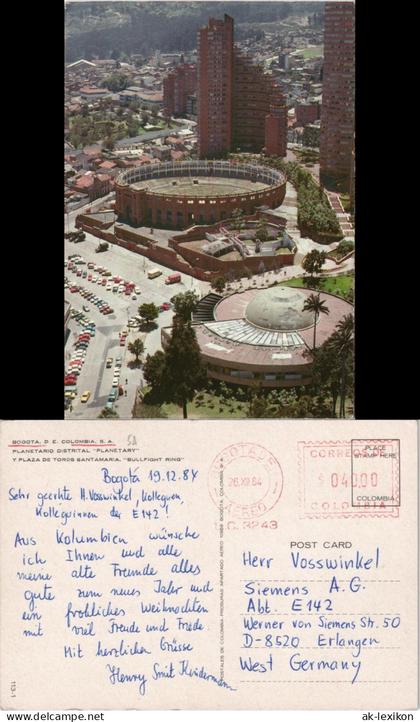 BOGOTA, D. E. COLOMBIA, S. A.
PLANETARIO DISTRITAL "PLANETARY"
Y PLAZA DE TOROS SANTAMARIA, "BULLFIGHT RING"
SA
Bogotá 19.12.84
Sehr geehrte H. Vosswinkel, Kollegen,
Kolleginnen der E142!
Aus Kolumbien wünsche
ich Ihnen und alle
meine alte Freunde alles
gute zum neues Jahr und
ein fröhliches Weihnachten
mit viel Freude und Friede.
Mit herzlichen Grüsse
Henry Smit
113-1
26.XII.84
AEREO
C. 3243
CORREOS DE
$ 040.00
COLOMBIA
PLACE
STAMP HERE
COLOMBIA
POST CARD
Herr Vosswinkel
Siemens A.G.
Abt. E142
Werner von Siemens Str. 50
D-8520 Erlangen
West Germany
ak-lexikon.com